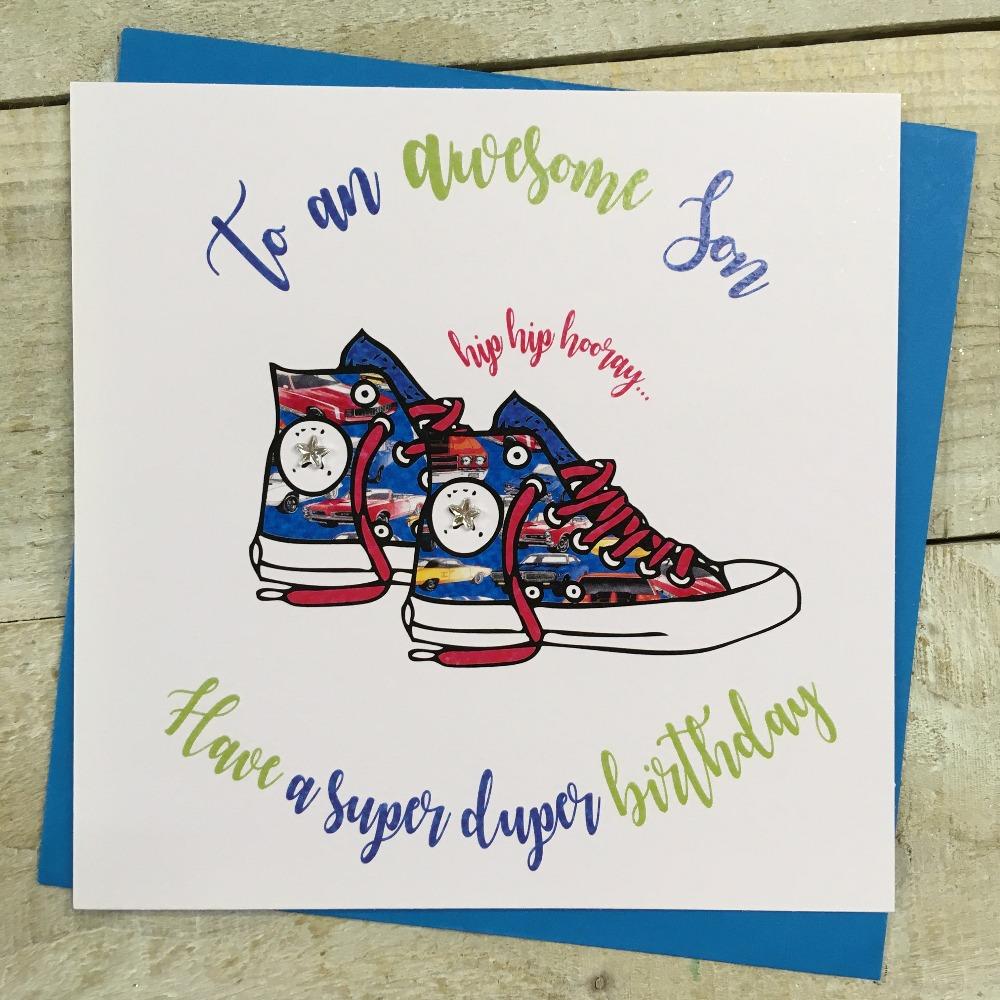 To an awesome Son
hip hip hooray...
Have a super duper birthday